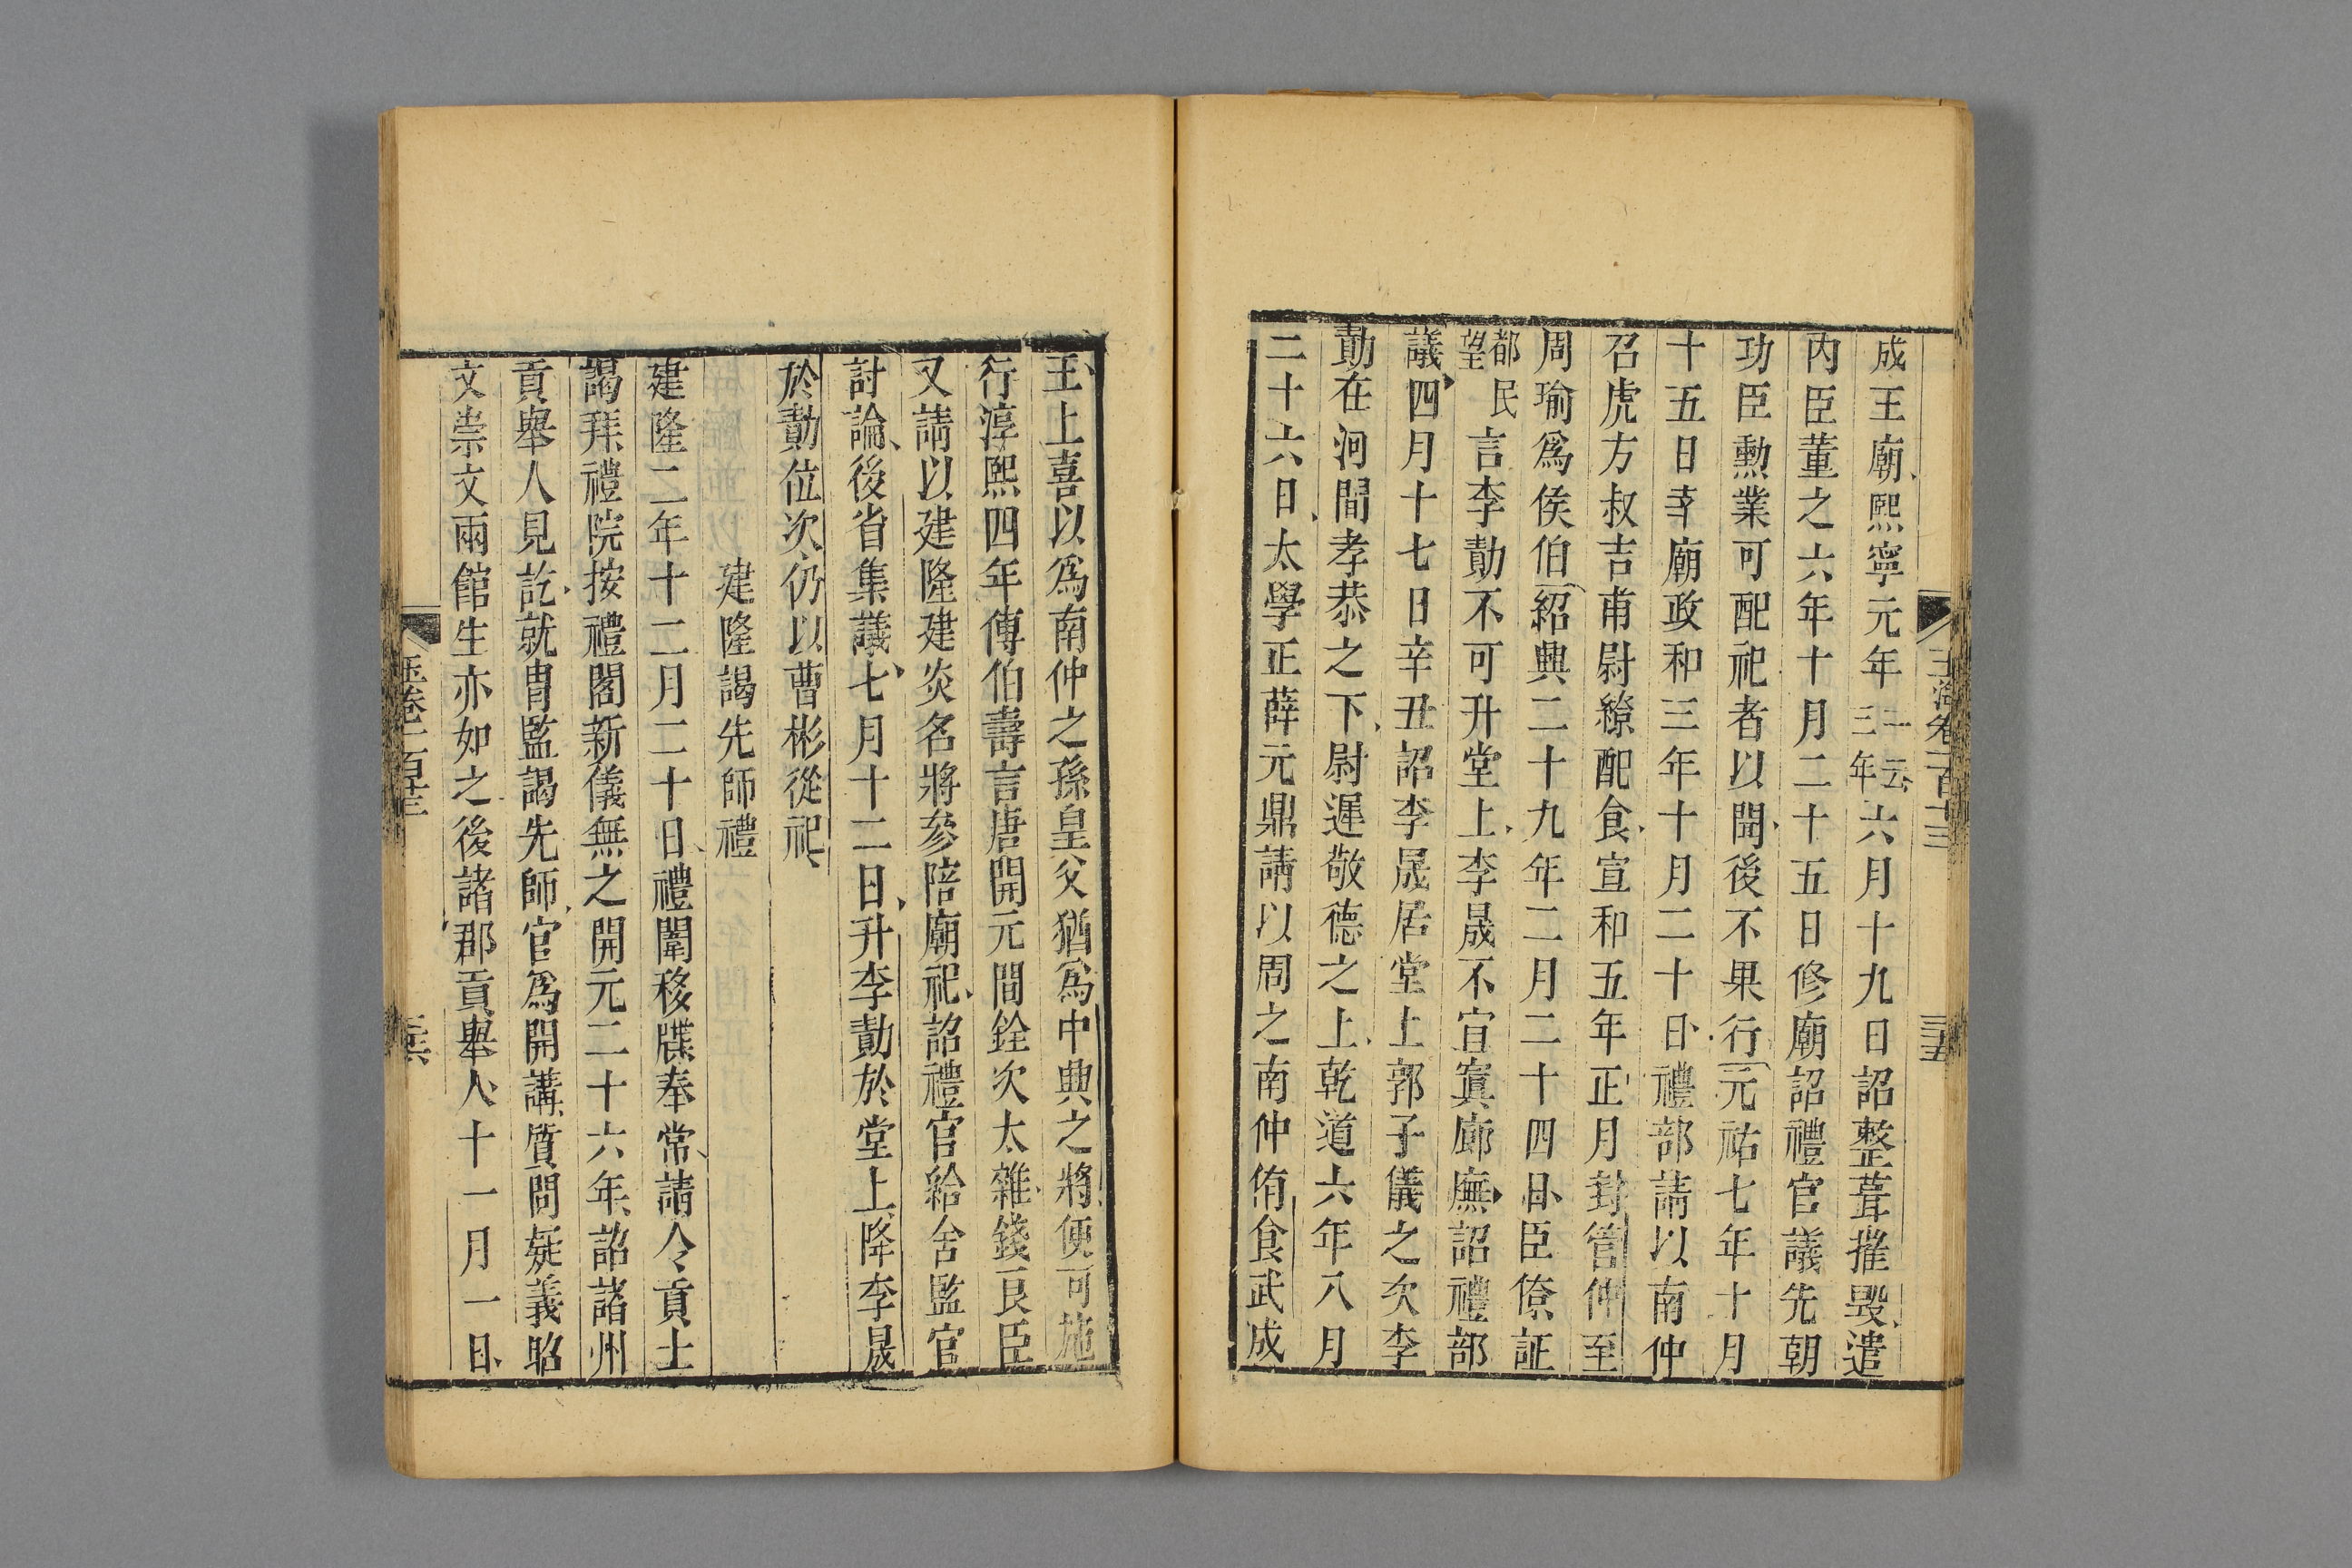 玉海卷一百十三
三十五
成王廟熙寧元年一云三年六月十九日詔整葺摧毀遣
内臣董之六年十月二十五日修廟詔禮官議先朝
功臣勲業可配祀者以聞後不果行元祐七年十月
十五日幸廟政和三年十月二十日禮部請以南仲
召虎方叔吉甫尉繚配食宣和五年正月封管仲至
周瑜爲侯伯紹興二十九年二月二十四日臣僚証
都民望言李勣不可升堂上李晟不宜寘廊廡詔禮部
議四月十七日辛丑詔李晟居堂上郭子儀之次李
勣在河間孝恭之下尉遲敬德之上乾道六年八月
二十六日太學正薛元鼎請以周之南仲侑食武成
王上喜以爲南仲之孫皇父猶爲中興之將便可施
行淳熙四年傅伯壽言唐開元間銓次太雜錢良臣
又請以建隆建炎名將參陪廟祀詔禮官給舍監官
討論後省集議七月十二日升李勣於堂上降李晟
於勣位次仍以曹彬從祀
建隆謁先師禮
建隆二年十二月二十日禮闈移牒奉常請令貢士
謁拜禮院按禮閣新儀無之開元二十六年詔諸州
貢舉人見訖就胄監謁先師官爲開講質問疑義昭
文崇文兩館生亦如之後諸郡貢舉人十一月一日